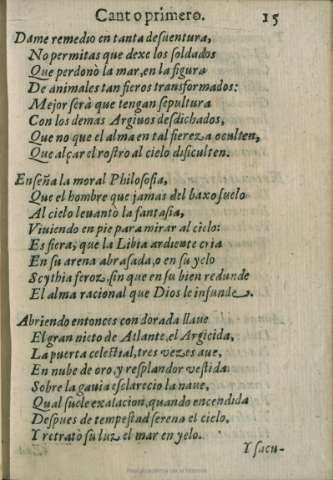 Canto primero. 15
Dame remedio en tanta desuentura,
No permitas que dexe los soldados
Que perdonò la mar, en la figura
De animales tan fieros transformados:
Mejor serà que tengan sepultura
Con los demas Argiuos desdichados,
Que no que el alma en tal fiereza oculten,
Que alçar el rostro al cielo dificulten.
Enseña la moral Philosofia,
Que el hombre que jamas del baxo suelo
Al cielo leuantò la fantasia,
Viuiendo en pie para mirar al cielo:
Es fiera, que la Libia ardiente cria
En su arena abrasada, o en su yelo
Scythia feroz, sin que en su bien redunde
El alma racional que Dios le infunde.
Abriendo entonces con dorada llaue
El gran nieto de Atlante, el Argicida,
La puerta celestial, tres vezes aue,
En nube de oro, y resplandor vestida.
Sobre la gauia esclarecio la naue,
Qual suele exalacion, quando encendida
Despues de tempestad serena el cielo,
Y retratò su luz el mar en yelo.
Y sacu-